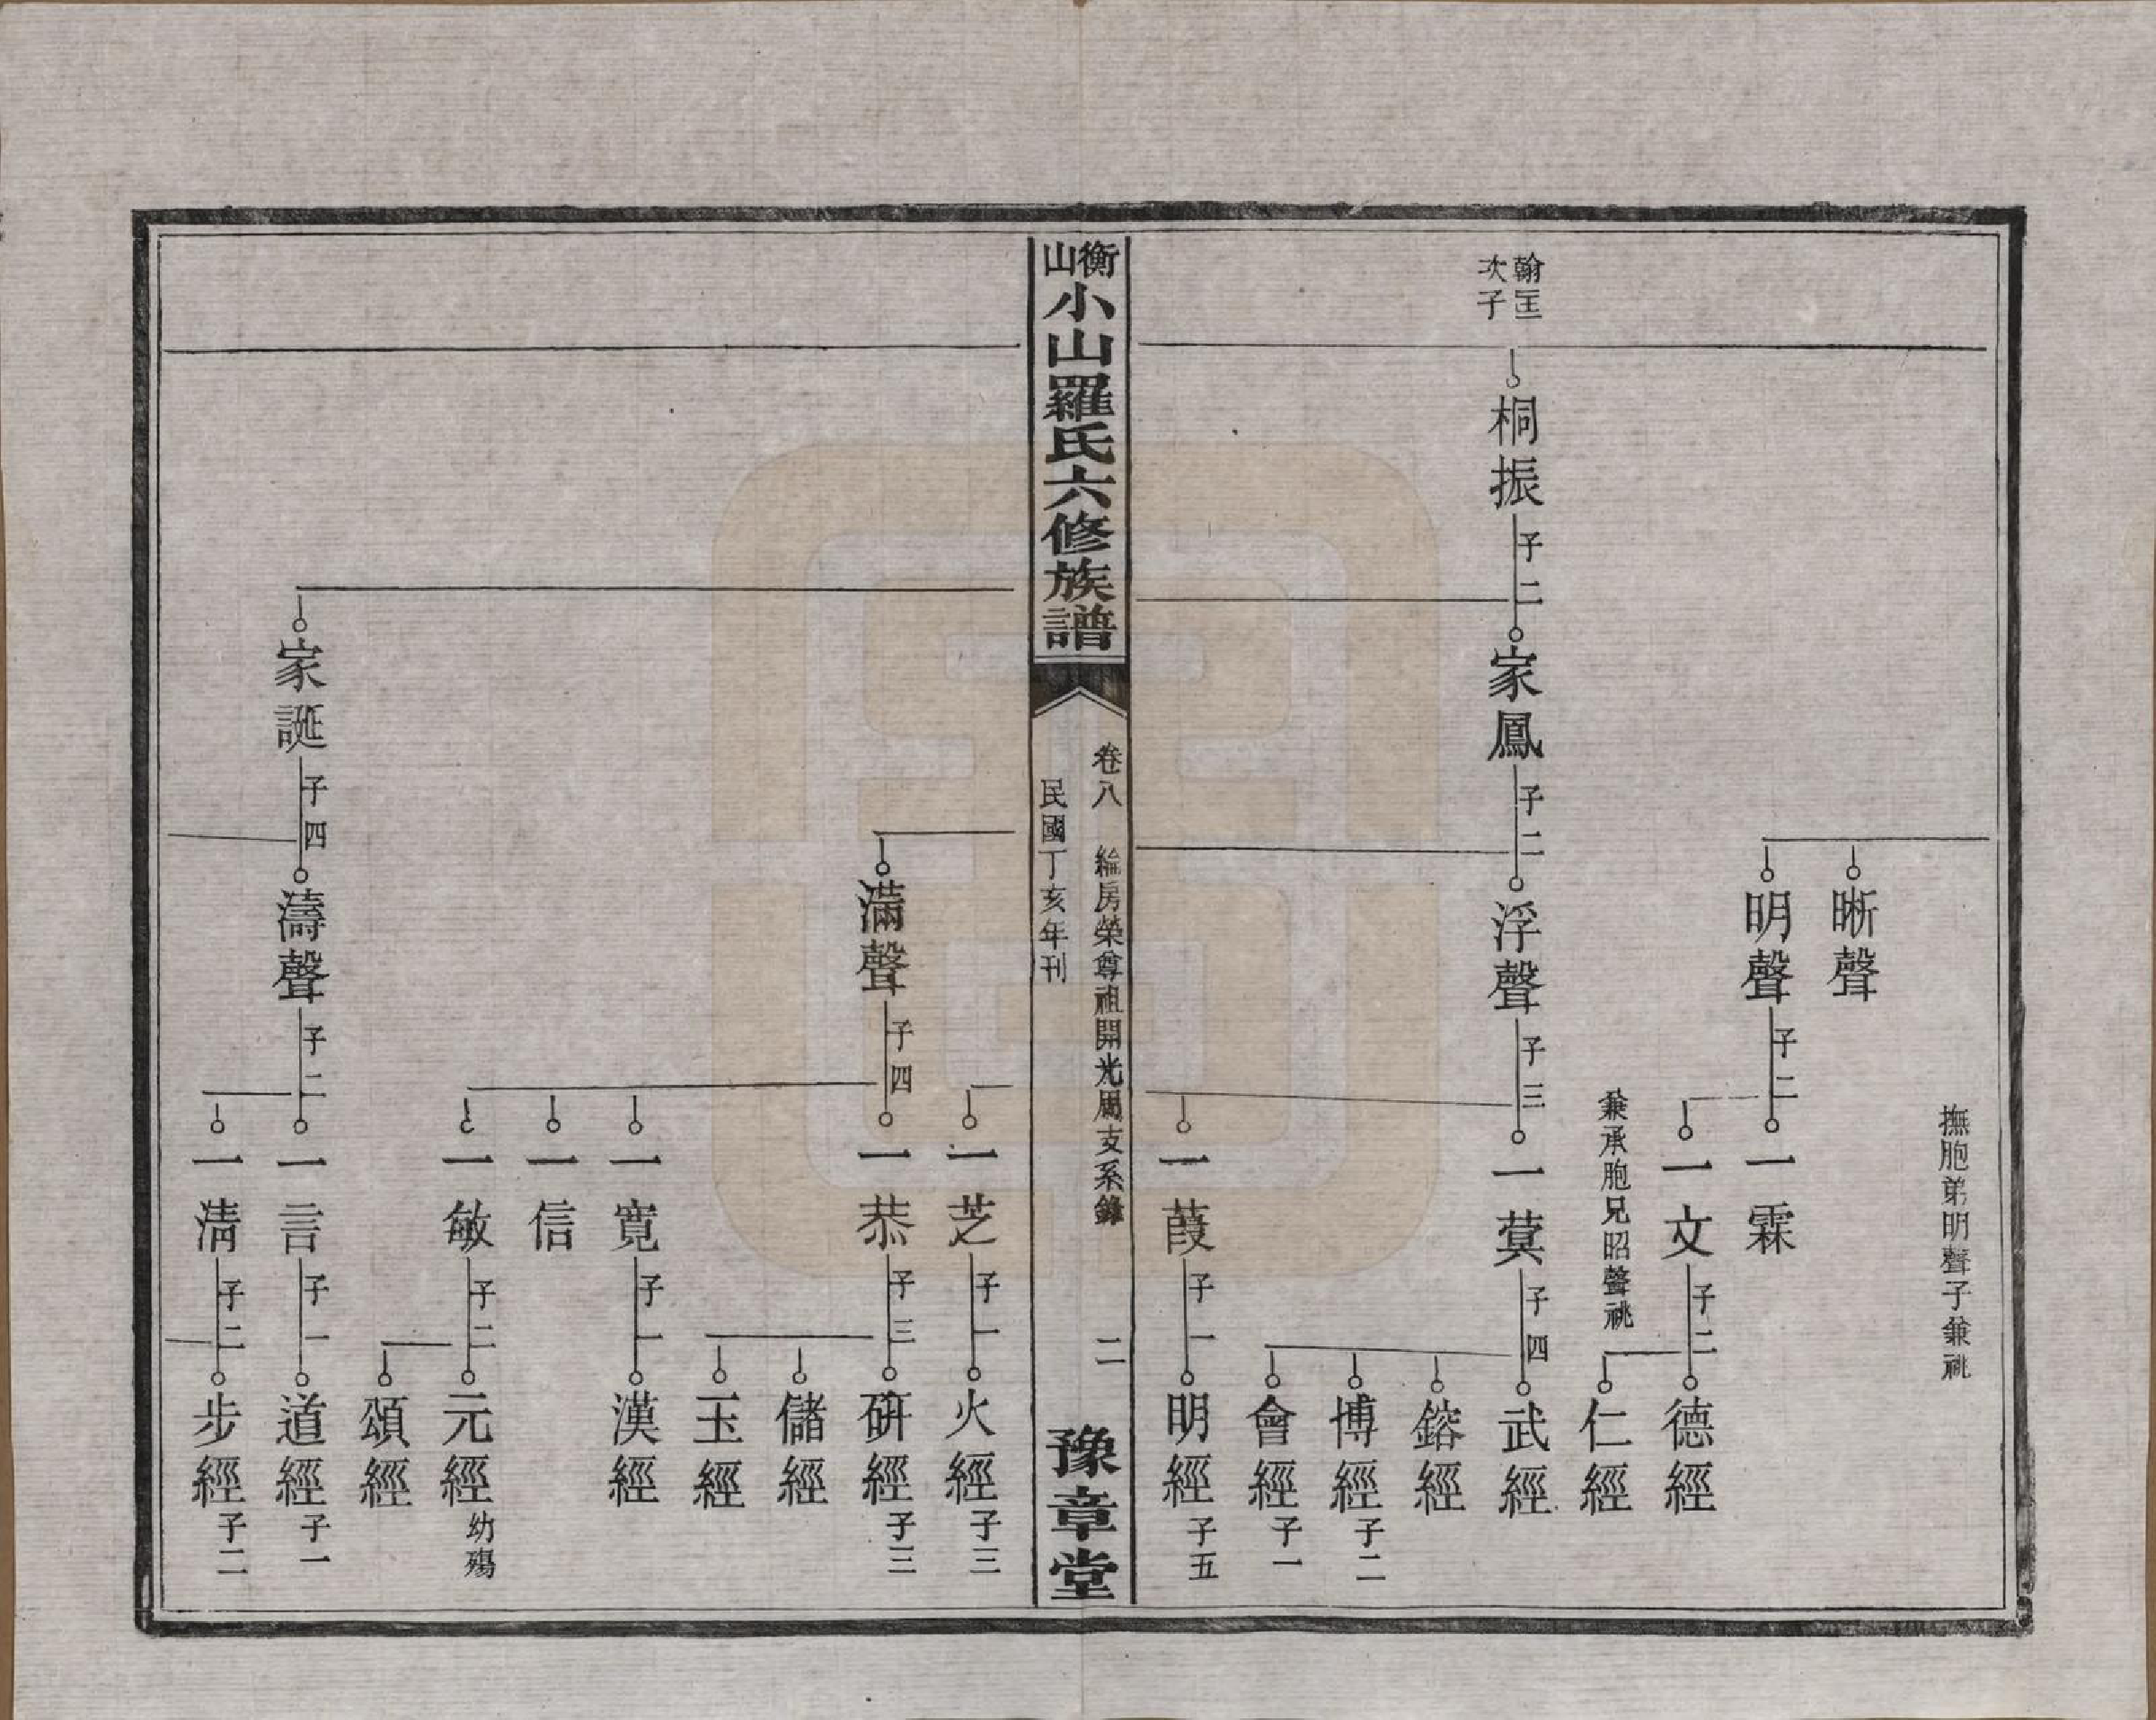 撫胞弟明聲子兼祧
晰聲
明聲 子二
一霖
一文 子二
德經
仁經
兼承胞兄昭聲祧
翰匡次子
桐振 子二
家鳳 子二
浮聲 子三
一蓂 子四
武經
鎔經
博經 子二
會經 子一
一葭 子一
明經 子五
衡山小山羅氏六修族譜
卷八 綸房榮尊祖開光周支系錄 二
民國丁亥年刊
豫章堂
一芝 子一
火經 子三
滿聲 子四
一恭 子三
研經 子三
儲經
玉經
一寬 子一
漢經
一信
一敏 子二
元經 幼殤
頌經
家誕 子四
濤聲 子二
一言 子一
道經 子一
一清 子二
步經 子二